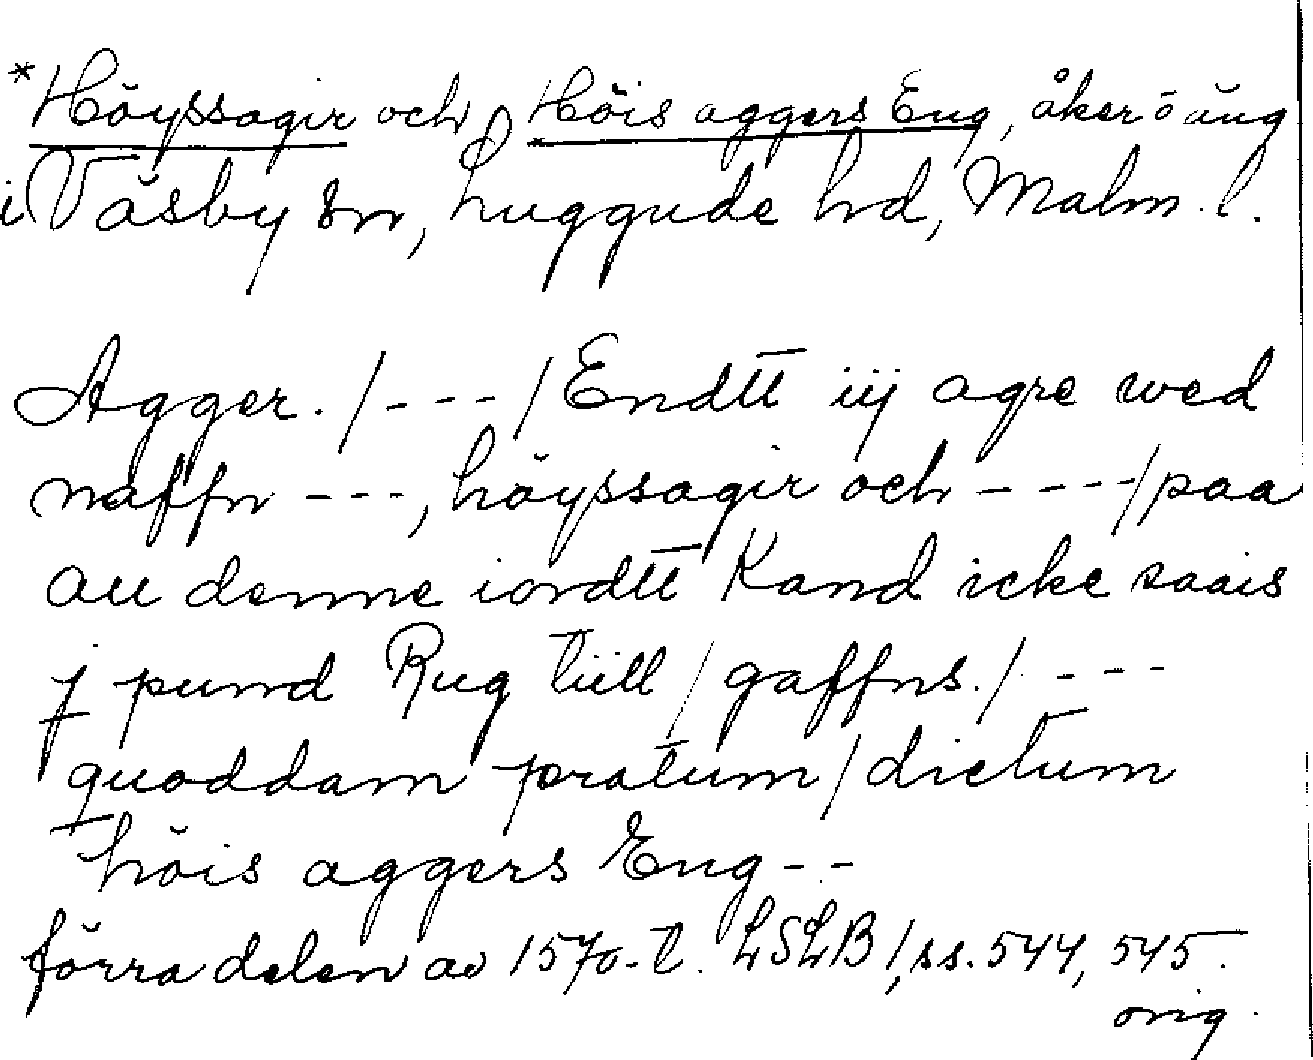 *Höyssagir och Höis aggers Eng, åker o äng
i Väsby sn, Luggude hd, Malm. l.
Agger. /---/ Endtt iij agre wed
naffn ---, höyssagir och ---/ paa
all denne iordtt Kand icke saais
j pund Rug tiill / gaffns./. ---
quoddam pratum / dictum
höis aggers Eng --
förra delen av 1570-t. LSLB 1, ss. 544, 545.
orig.